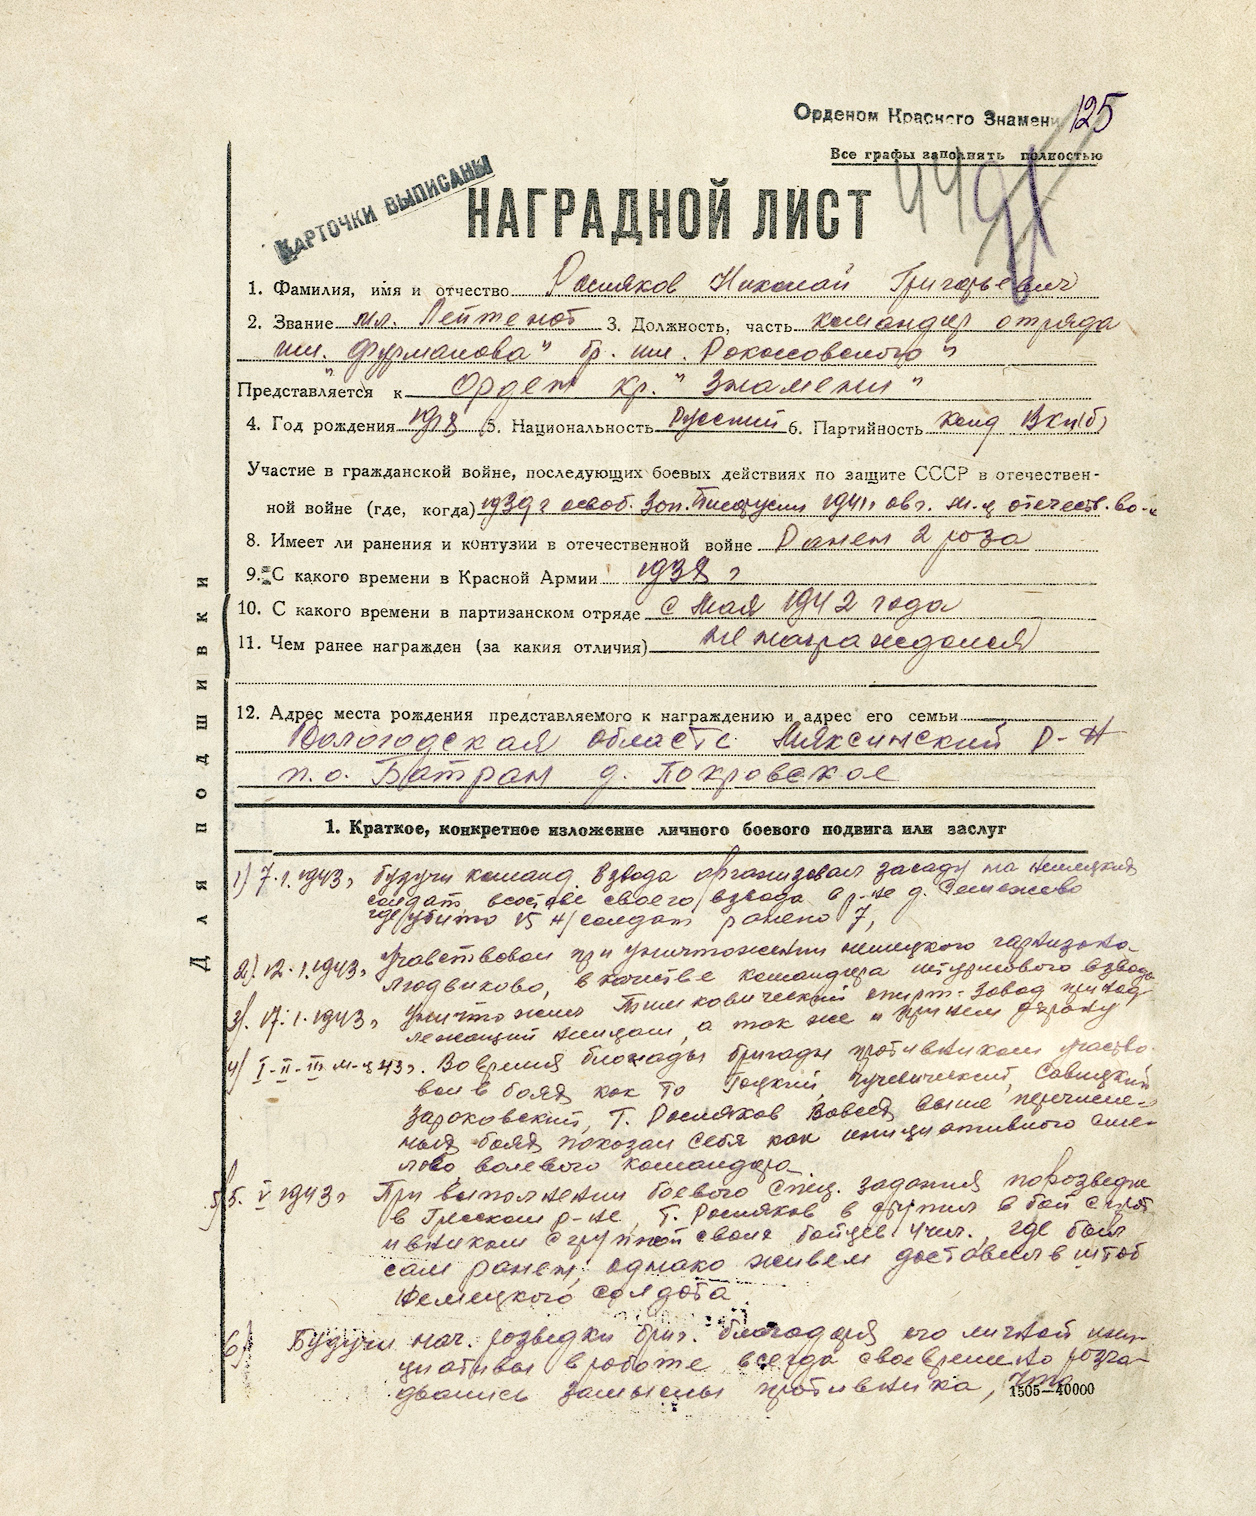 Орденом Красного Знамени 125
Все графы заполнять полностью
КАРТОЧКИ ВЫПИСАНЫ
НАГРАДНОЙ ЛИСТ
1. Фамилия, имя и отчество Росляков Николай Григорьевич
2. Звание мл. Лейтенат 3. Должность, часть командир отряда
им. "Фурманова" бр. им. Рокоссовского"
Представляется к Орден кр. "Знамени"
4. Год рождения 1918 5. Национальность Русский 6. Партийность канд ВКП(б)
Участие в гражданской войне, последующих боевых действиях по защите СССР в отечествен-
ной войне (где, когда) 1939 г освоб. Зап. 1941г авг. отечеств. во-
8. Имеет ли ранения и контузии в отечественной войне Ранен 2 раза
9. С какого времени в Красной Армии 1938 г
10. С какого времени в партизанском отряде с Мая 1942 года
11. Чем ранее награжден (за какия отличия) не награждался
12. Адрес места рождения представляемого к награждению и адрес его семьи
Вологодская область Мяксинский р-н
п.о. Батран д. Покровское
Для подшивки
1. Краткое, конкретное изложение личного боевого подвига или заслуг
1) 7.1.1943г будучи команд. взвода организовал засаду на немецких
солдат, в составе своего взвода в р-не д. Семежево
где убито 15 н/солдат ранено 7,
2) 12.1.1943г Учавствовал при уничтожении немецкого гарнизона
Людвиково, в качестве командира штурмового взвода
3). 17.1.1943г уничтожил Тимковический спирт-завод принад-
лежащий немцам, а так же и принем охрану
4) I-II-III м-ц 43г. Во время блокады бригады противником участво-
вал в боях как то Гоцкий, Чучевический, Савицкий
Зароковский, Т. Росляков во всех выше перечисле-
ных боях показал себя как инициативного сме-
лово волевого командира
5) 5. V 1943г При выполнении боевого спец. задания по розведке
в Греском р-не, Т. Росляков вступил в бой с прот
ивником с группой своих бойцев 4 чел., где был
сам ранен, однако живьем доставил в штаб
немецкого солдата
6) Будучи нач. розведки бриг. благодаря его личной ини-
циативы в работе всегда своевремено розга-
дывались замыслы противника, что
1505—40000